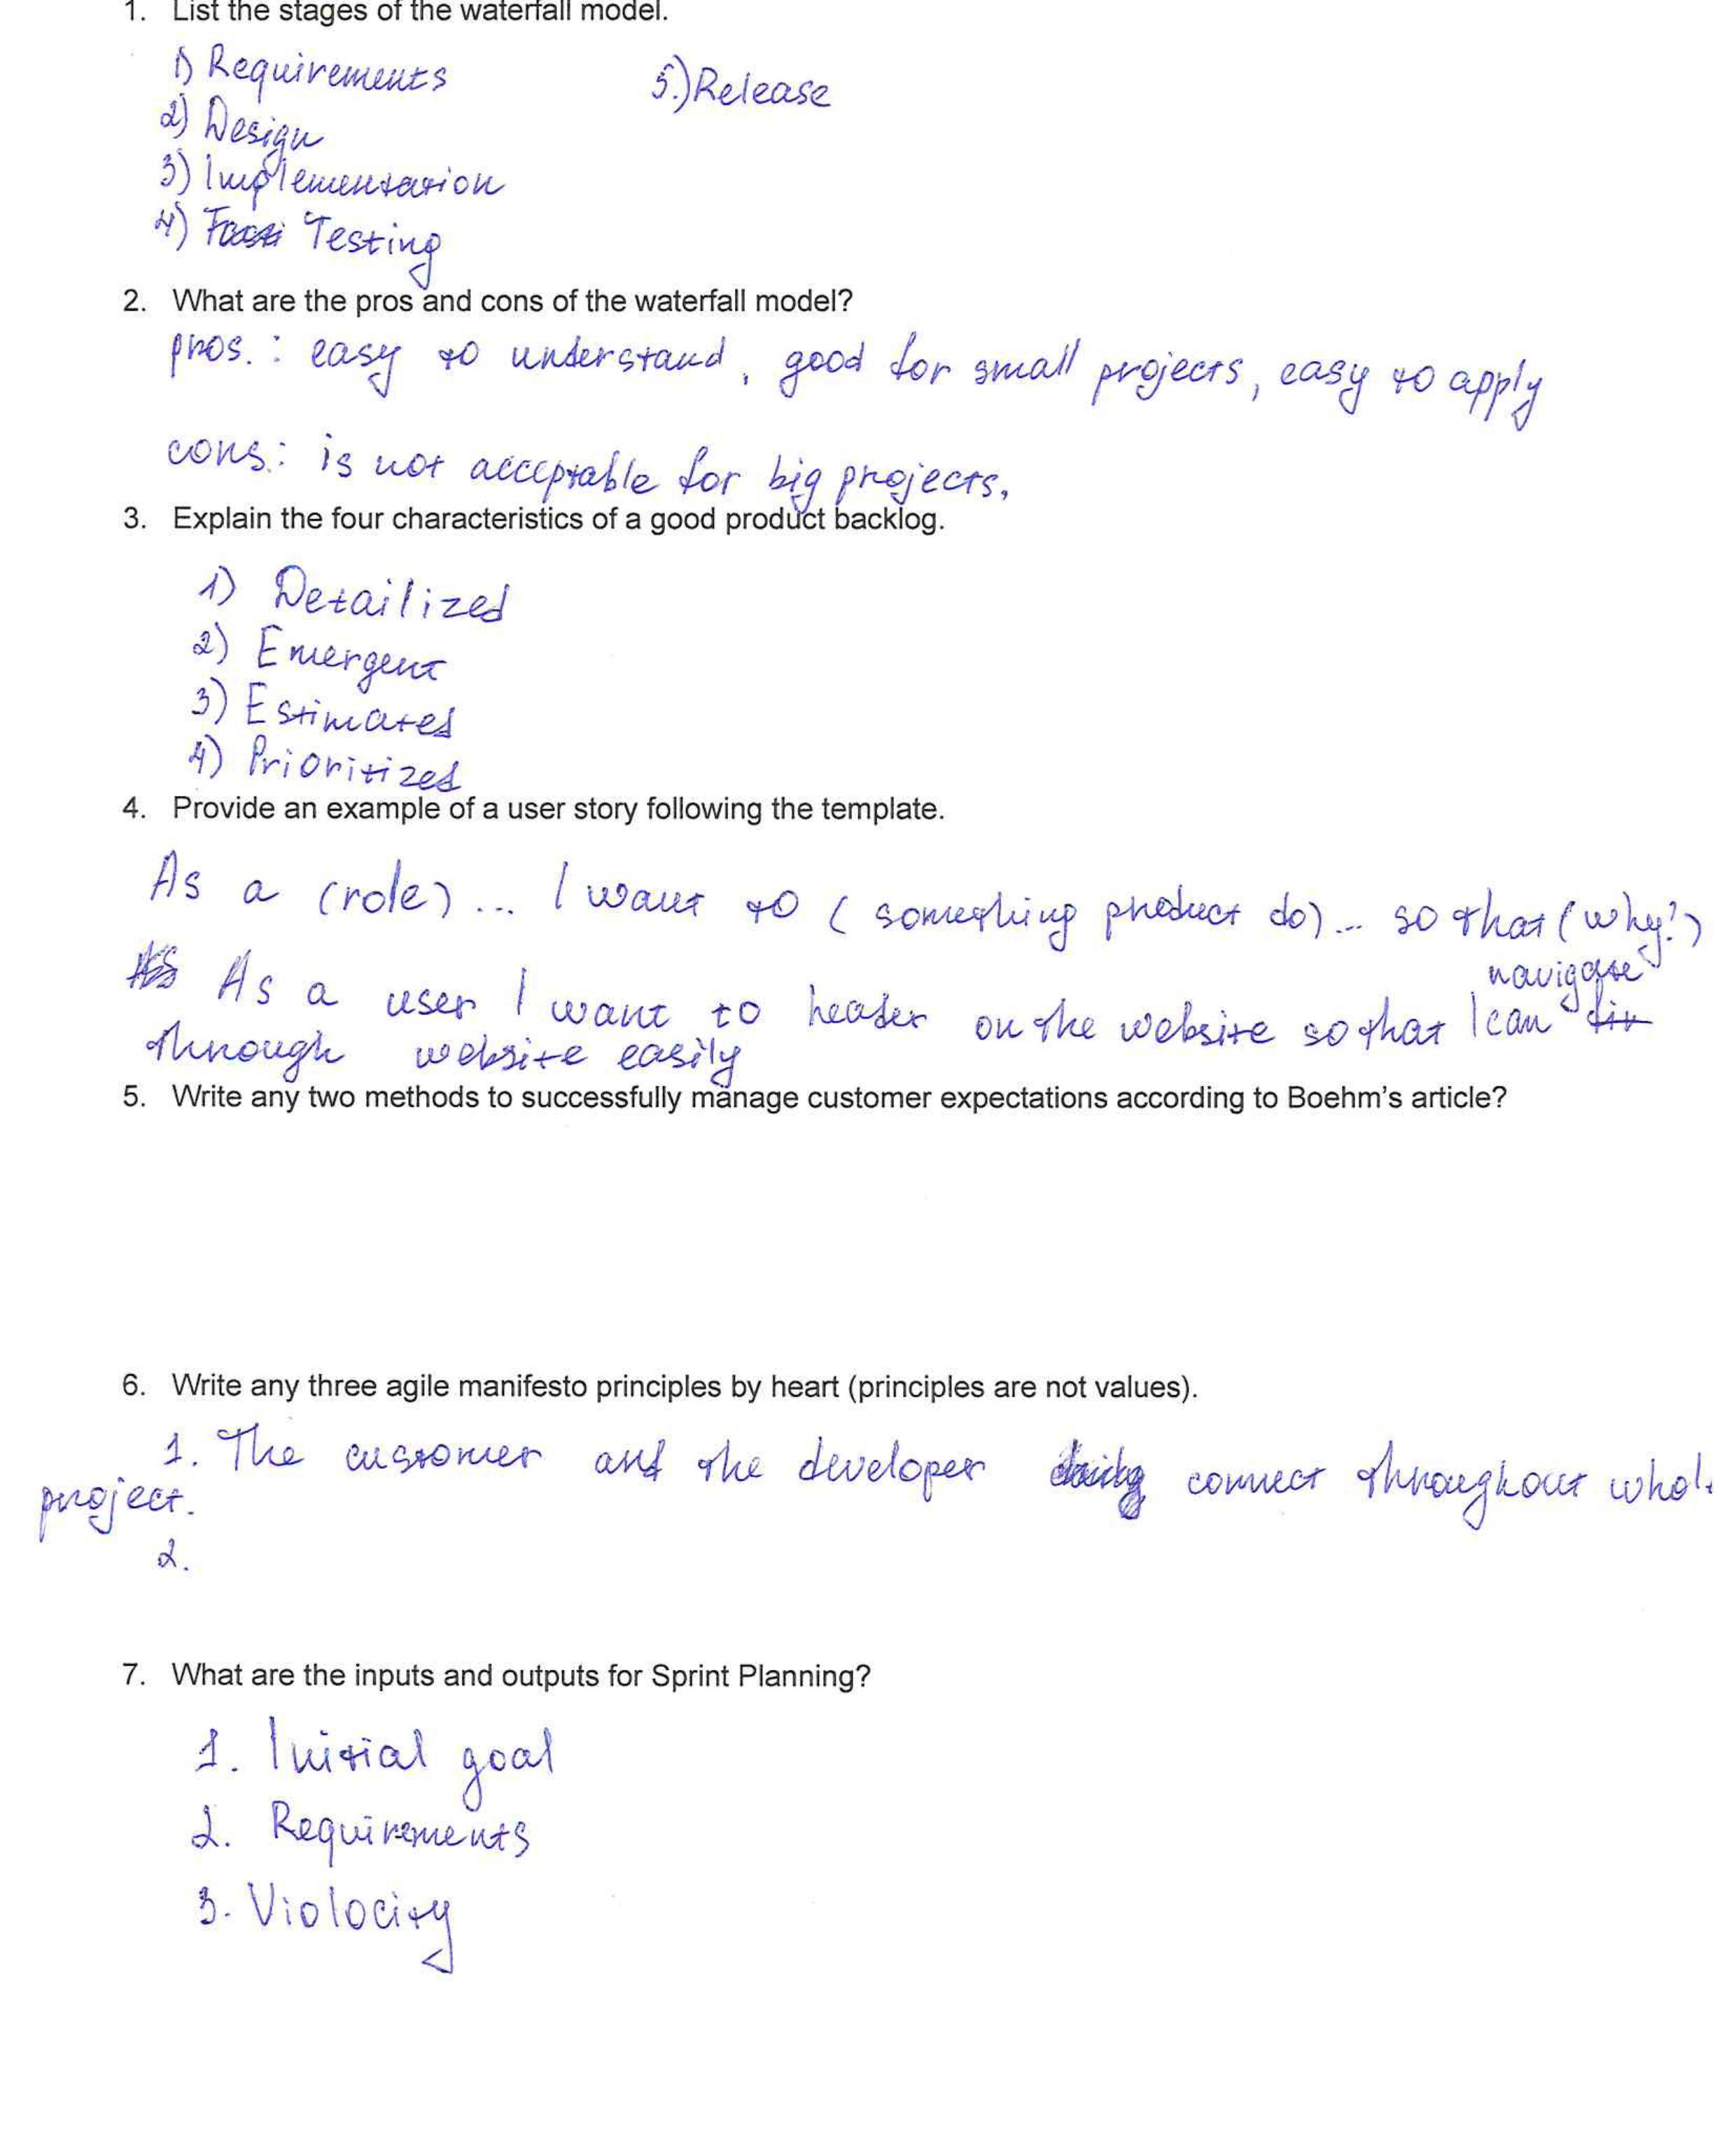 1. List the stages of the waterfall model.
1) Requirements
2) Design
3) Implementation
4) Testing
5.) Release
2. What are the pros and cons of the waterfall model?
pros. : easy to understand, good for small projects, easy to apply
cons.: is not acceptable for big projects.
3. Explain the four characteristics of a good product backlog.
1) Detailized
2) Emergent
3) Estimated
4) Prioritized
4. Provide an example of a user story following the template.
As a (role)... I want to (something product do)... so that (why?)
As a user I want to header on the website so that I can navigate
through website easily
5. Write any two methods to successfully manage customer expectations according to Boehm's article?
6. Write any three agile manifesto principles by heart (principles are not values).
1. The customer and the developer connect throughout whol
project.
2.
7. What are the inputs and outputs for Sprint Planning?
1. Initial goal
2. Requirements
3. Violocity